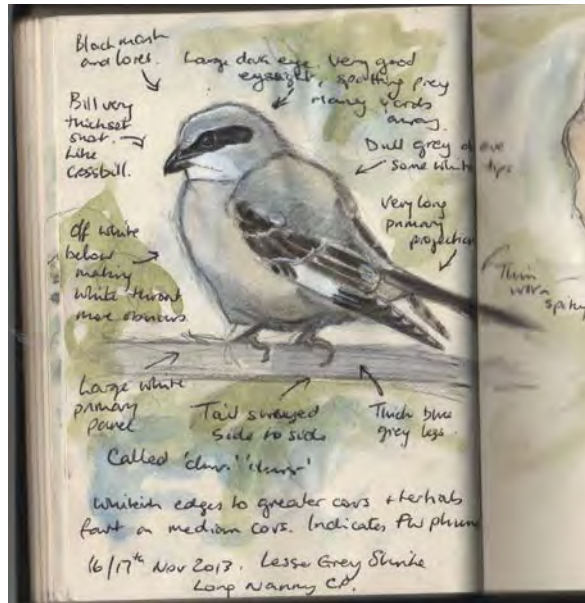 Black mask
and lores.
Large dark eye. Very good
eyesight, spotting prey
many yards
away.
Bill very
thickset
snort.
Like
crossbill.
Dull grey above
some white tips
Very long
primary
projection
Off white
below
making
white throat
more obvious
Thin
spiky
Large white
primary
panel
Tail swayed
side to side
Thick blue
grey legs.
Called 'churr' 'churr'
Whiteish edges to greater covs + tertials
faint on medium covs. Indicates FW plum
16/17th Nov 2013. Lesser Grey Shrike
Long Nanny CP.